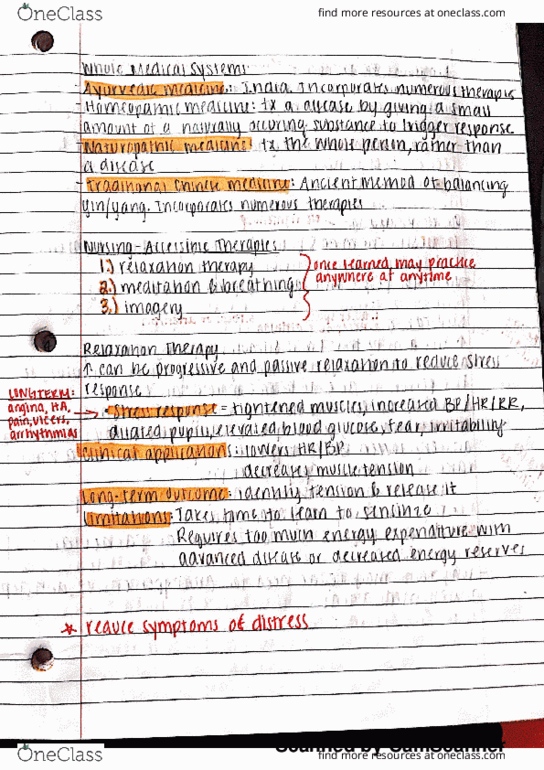 OneClass
find more resources at oneclass.com
Whole Medical Systems
- Ayurvedic medicine: India. Incorporates numerous therapies
- Homeopathic medicine: tx a disease by giving a small
amount of a naturally occuring substance to trigger response
- Naturopathic medicine: tx. the whole person, rather than
a disease
- Traditional Chinese medicine: Ancient method of balancing
yin/yang. Incorporates numerous therapies
Nursing-Accessible Therapies
1.) relaxation therapy
2.) meditation & breathing
3.) imagery
once learned may practice
anywhere at anytime
Relaxation Therapy
↑ can be progressive and passive relaxation to reduce stress
response
LONGTERM:
angina, HA,
pain, ulcers,
arrhythmias
→ Stress response = tightened muscles, increased BP/HR/RR,
dilated pupils, elevated blood glucose, fear, irritability
Clinical application: lowers HR/BP
decreases muscle tension
Long-term outcome: identify tension & release it
Limitations: Takes time to learn to
Requires too much energy expenditure with
advanced disease or decreased energy reserves
* reduce symptoms of distress
Scanned by CamScanner
OneClass
find more resources at oneclass.com